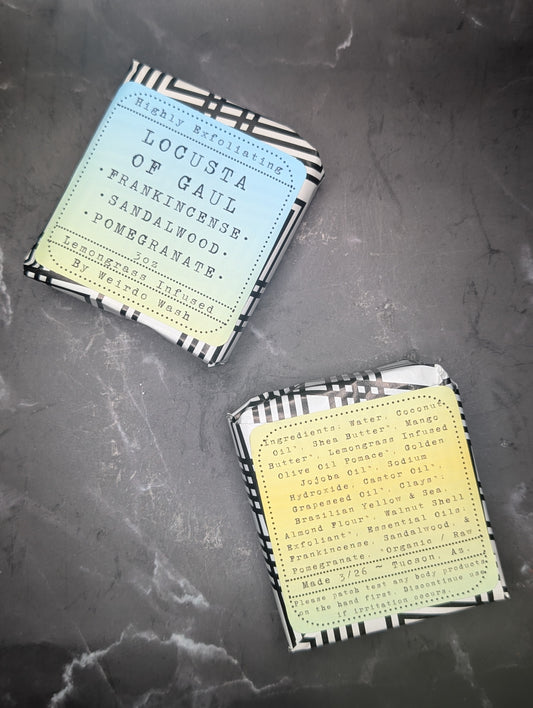 Highly Exfoliating
LOCUSTA
OF GAUL
·FRANKINCENSE·
·SANDALWOOD·
·POMEGRANATE·
3oz
Lemongrass Infused
By Weirdo Wash
Ingredients, Water, Coconut
Oil*, Shea Butter*, Mango
Butter*, Lemongrass Infused
Olive Oil Pomace*, Golden
Jojoba Oil*, Sodium
Hydroxide, Castor Oil*,
Grapeseed Oil*, Clays*,
Brazilian Yellow & Sea,
Almond Flour*, Walnut Shell
Exfoliant*, Essential Oils,
Frankincense, Sandalwood, &
Pomegranate. *Organic / Raw
Made 3/26 ~ Tucson, Az.
Please patch test any body products
on the hand first. Discontinue use
if irritation occurs.